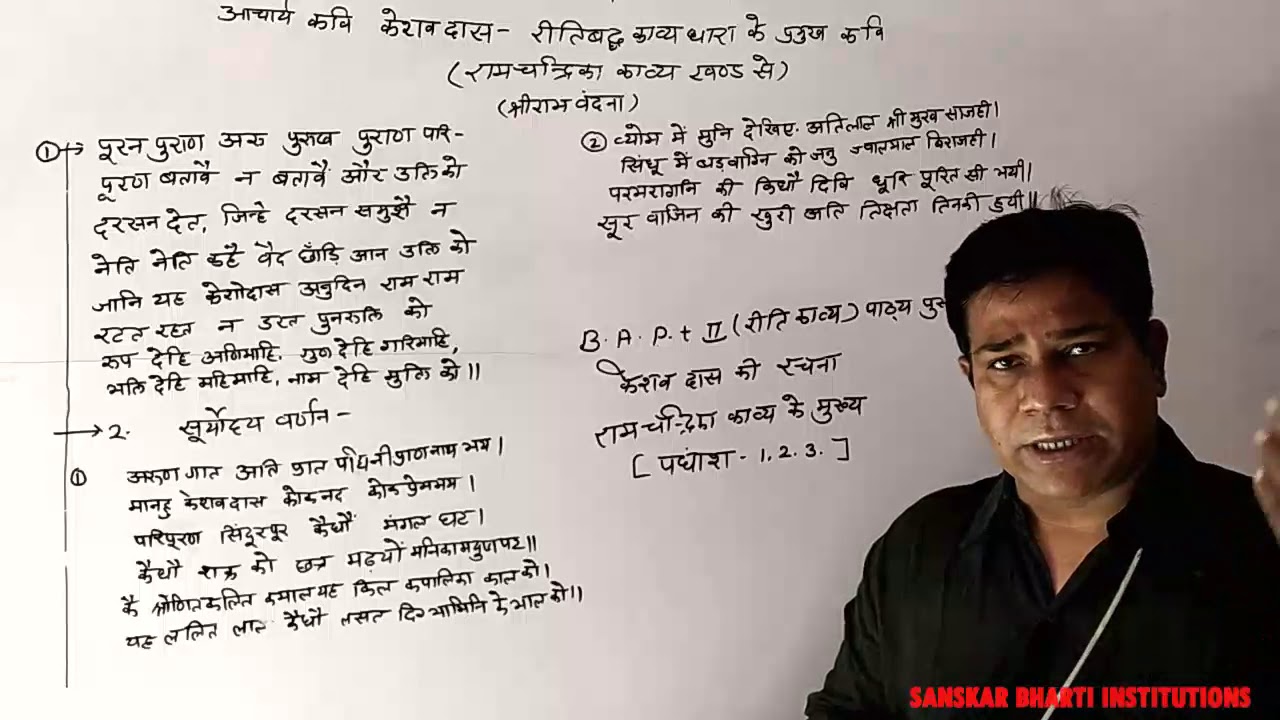 आचार्य कवि केशवदास - रीतिबद्ध काव्य धारा के प्रमुख कवि
(रामचन्द्रिका काव्य खण्ड से)
(श्रीराम वंदना)
① → पूरन पुराण अरु पुरुख पुराण परि-
पूरण बतावै न बतावैं और उक्ति को
दरसन देत, जिन्हे दरसन समुझै न
नेति नेति कहै वेद छाँड़ि आन उक्ति को
जानि यह केशोदास अनुदिन राम राम
रटत रहत न डरत पुनरुक्ति को
रूप देहि अणिमाहि, गुण देहि गरिमाहि,
भक्ति देहि महिमाहि, नाम देहि मुक्ति को॥
→ 2. सूर्योदय वर्णन -
① अरुण गात अति प्रात पद्मिनी प्राणनाथ भय।
मानहु केशवदास कोकनद कोक प्रेममय।
परिपूरण सिंदूरपूर कैधौं मंगल घट।
कैधौं शक्र को छत्र मढ़यों मनिकमयुख पट॥
कै श्रोणित कलित कपाल यह किल कपालिका काल को।
यह ललित लाल कैधौं लसत दिग्भामिनि के भाल को॥
② व्योम में मुनि देखिए अतिलाल श्री मुख साजही।
सिंधु में बड़वाग्नि की जनु ज्वालमाल विराजही।
पदमरागनि की किधौं दिवि धूरि पूरित सी भयी।
सूर वाजिन की खुरी अति तिक्षता तिनकी हुयी॥
B. A. P. t II (रीति काव्य) पाठ्य
केशव दास की रचना
रामचन्द्रिका काव्य के मुख्य
[ पद्यांश - 1. 2. 3. ]
SANSKAR BHARTI INSTITUTIONS